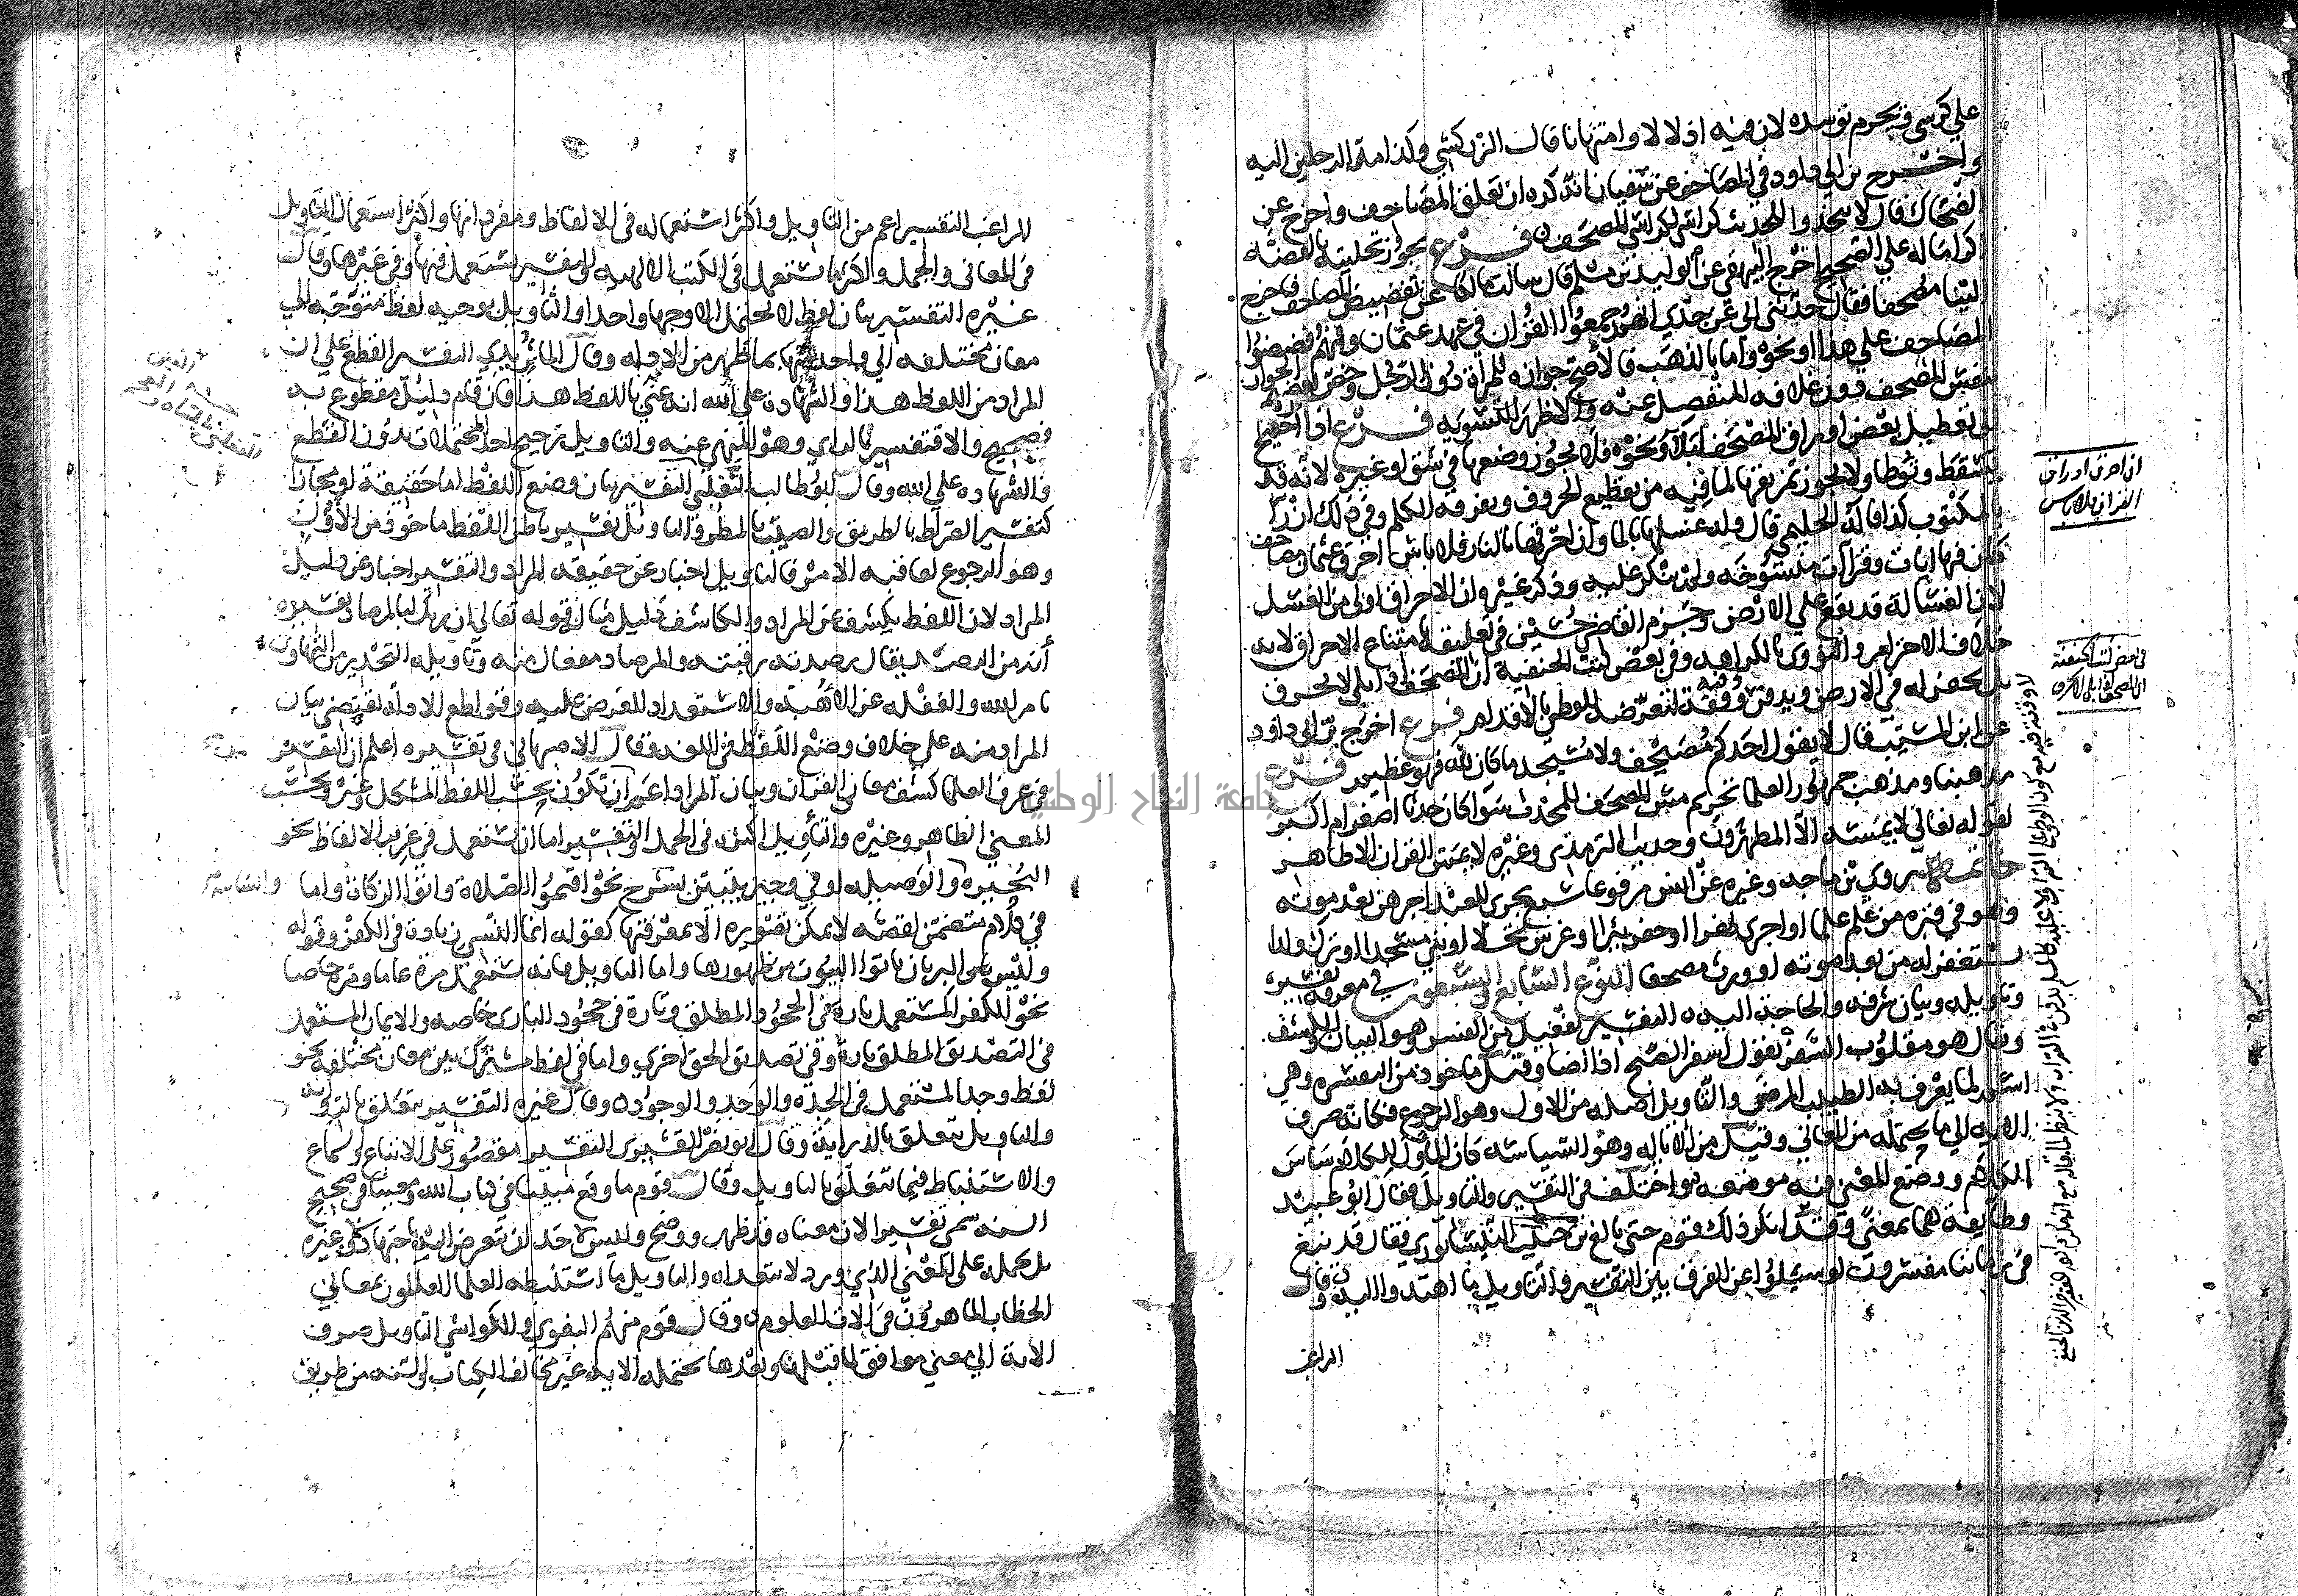 علي كرسي ويحرم توسده لان فيه اذلالا وامتهانا قال الزركشي وكذا مد الرجلين اليه
واخرج بن ابي داود في المصاحف عن سفيان انه كره ان تعلق المصاحف واخرج عن
الضحاك قال لا تتخذوا للحديث كراسي ككراسي المصحف فرع يجوز تحليته بالفضة
اكراما له علي الصحيح اخرج البيهقي عن الوليد بن مسلم قال سالت مالكا عن تفضيض المصاحف فاخرج
الينا مصحفا فقال حدثني ابي عن جدي انهم جمعوا القران في عهد عثمان وانهم فضضوا
المصاحف علي هذا او نحوه واما بالذهب فالاصح جوازه للمراة دون الرجل وخص بعضهم الجواز
بنفس المصحف دون غلافه المنفصل عنه والاظهر التسويه فرع اذا احتيج
الي تعطيل بعض اوراق المصحف لبلاء ونحوه فلا يجوز وضعها في شق او غيره لانه قد
يسقط ويوطا ولا يجوز تمزيقها لما فيه من تقطيع الحروف وتفرقه الكلم وفي ذلك ازرا
بالمكتوب كذا قاله الحليمي قال وله غسلها بالما وان احرقها بالنار فلا باس احرق عثمان مصاحف
كان فيها ايات وقراات منسوخه ولم ينكر عليه وذكر غيره ان الاحراق اولي من الغسل
لان الغساله قد تقع علي الارض وجزم القاضي حسين في تعليقه بامتناع الاحراق لانه
خلاف الاحترام والنووي بالكراهه وفي بعض كتب الحنفية ان المصحف اذا بلي لا يحرق
بل يحفر له في الارض ويدفن وفيه وقفة لتعرضه للوطي بالاقدام فرع اخرج بن ابي داود
عن ابن المسيب قال لا يقول احدكم مصيحف ولا مسيجد ما كان لله فهو عظيم فرع
مذهبنا ومذهب جمهور العلما تحريم مس المصحف للمحدث سوا كان حدثا اصغر ام اكبر
لقوله تعالي لا يمسه الا المطهرون وحديث الترمذي وغيره لا يمس القران الا طاهر
خاتمه روي بن ماجه وغيره عن انس مرفوعا سبع يجري للعبد اجرهن بعد موته
وهو في قبره من علم علما او اجري نهرا او حفر بئرا او غرس نخلا او بني مسجدا او ترك ولدا
يستغفر له من بعد موته او ورث مصحفا النوع السابع والسبعون في معرفه تفسيره
وتاويله وبيان شرفه والحاجة اليه التفسير تفعيل من الفسر وهو البيان والكشف
ويقال هو مقلوب السفر تقول اسفر الصبح اذا اضا وقيل ماخوذ من التفسره وهي
اسم لما يعرف به الطبيب المرض والتاويل اصله من الاول وهو الرجوع فكانه صرف
الايه الي ما يحتمله من المعاني وقيل من الاياله وهو السياسه كان الماول للكلام ساس
الكلام ووضع المعني فيه موضعه واختلف في التفسير والتاويل فقال ابو عبيد
وطايفه هما بمعني وقد انكر ذلك قوم حتي بالغ بن حبيب النيسابوري فقال قد نبغ
في زماننا مفسرون لو سيلوا عن الفرق بين التفسير والتاويل ما اهتدوا اليه وقال
الراغب
ان احرق اوراق
القران فلا باس
في بعض كتب الحنفية
ان المصحف اذا بلي لا يحرق
الراغب التفسير اعم من التاويل واكثر استعماله في الالفاظ ومفرداتها واكثر استعمال التاويل
في المعاني والجمل واكثر ما يستعمل في الكتب الالهيه والتفسير يستعمل فيها وفي غيرها وقال
غيره التفسير بيان لفظ لا يحتمل الا وجها واحدا والتاويل توجيه لفظ متوجه الي
معان مختلفه الي واحد منها بما ظهر من الادله وقال الماتريدي التفسير القطع علي ان
المراد من اللفظ هذا والشهاده علي الله انه عني باللفظ هذا فان قام دليل مقطوع به
فصحيح والا فتفسير بالراي وهو المنهي عنه والتاويل ترجيح احد المحتملات بدون القطع
والشهاده علي الله وقال ابو طالب الثعلبي التفسير بيان وضع اللفظ اما حقيقة او مجازا
كتفسير الصراط بالطريق والصيب بالمطر والتاويل تفسير باطن اللفظ ماخوذ من الاول
وهو الرجوع لعاقبه الامر فالتاويل اخبار عن حقيقه المراد والتفسير اخبار عن دليل
المراد لان اللفظ يكشف عن المراد والكاشف دليل مثاله قوله تعالي ان ربك لبالمرصاد تفسيره
أنه من الرصد يقال رصدته رقبته والمرصاد مفعال منه وتاويله التحذير من التهاون
بامر الله والغفله عن الاهبة والاستعداد للعرض عليه وقواطع الادله تقتضي بيان
المراد منه علي خلاف وضع اللفظ في اللغه وقال الاصبهاني في تفسيره اعلم ان التفسير
في عرف العلما كشف معاني القران وبيان المراد اعم ان تكون بحسب اللفظ المشكل وغيره وبحسب
المعني الظاهر وغيره والتاويل اكثره في الجمل والتفسير اما ان يستعمل في غريب الالفاظ نحو
البحيره والوصيله او في وجيز يتبين بشرح نحو اقيموا الصلاة واتوا الزكاة واما
في كلام متضمن لقصه لا يمكن تصويره الا بمعرفتها كقوله انما النسي زيادة في الكفر وقوله
وليس البر بان تاتوا البيوت من ظهورها واما التاويل فانه يستعمل مرة عاما ومره خاصا
نحو الكفر المستعمل تارة في الجحود المطلق وتارة في جحود الباري خاصه والايمان المستعمل
في التصديق المطلق تارة وفي تصديق الحق اخري واما في لفظ مشترك بين معان مختلفه نحو
لفظ وجد المستعمل في الجده والوجد والوجود وقال غيره التفسير يتعلق بالروايه
والتاويل يتعلق بالدراية وقال ابو نصر القشيري التفسير مقصور علي الاتباع والسماع
والاستنباط فيما يتعلق بالتاويل وقال قوم ما وقع مبينا في كتاب الله ومعينا في صحيح
السنه سمي تفسيرا لان معناه قد ظهر ووضح وليس لاحد ان يتعرض اليه باجتهاد ولا غيره
بل يحمله علي المعني الذي ورد لا يتعداه والتاويل ما استنبطه العلما العاملون بمعاني
الخطاب الماهرون في الات العلوم وقال قوم منهم البغوي والكواشي التاويل صرف
الاية الي معني موافق لما قبلها وبعدها تحتمله الايه غير مخالف للكتاب والسنه من طريق
جامعة النجاح الوطنية